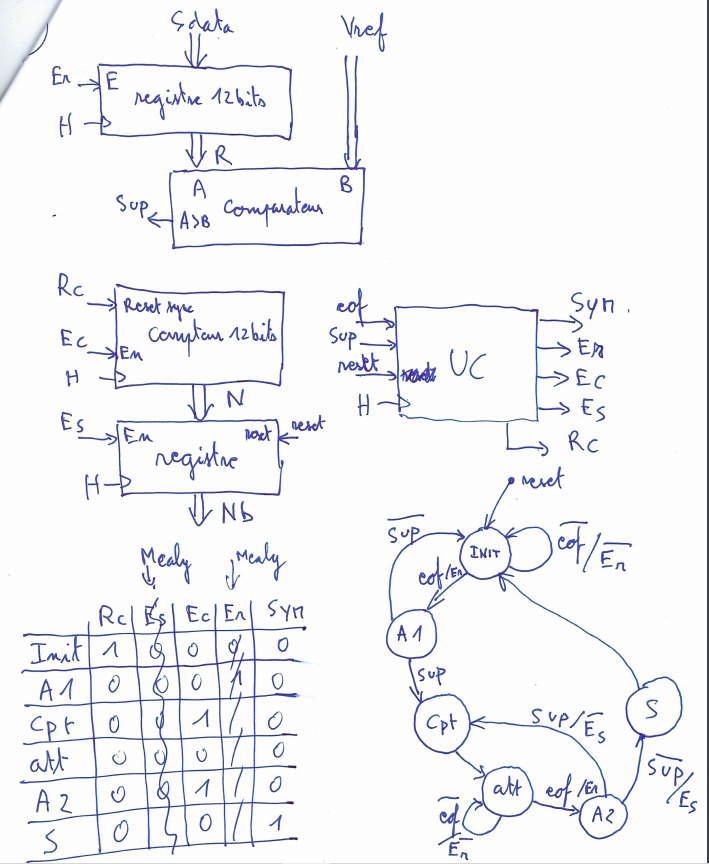 Sdata
Vref
En
E
registre 12bits
H
R
A
B
Comparateur
Sup
A>B
Rc
Reset sync
Compteur 12bits
Ec
En
H
N
Es
En
reset
reset
registre
H
Nb
eof
Sup
reset
H
UC
Syn
En
Ec
Es
Rc
reset
INIT
Sup
eof / En
eof/En
A1
sup
Cpt
Sup/Es
S
att
eof/En
A2
Sup/Es
eof/En
Mealy
Mealy
Rc Es Ec En Syn
Init 1 0 0 0 0
A1 0 0 0 1 0
Cpt 0 0 1 / 0
att 0 0 0 / 0
A2 0 0 1 / 0
S 0 0 / 1